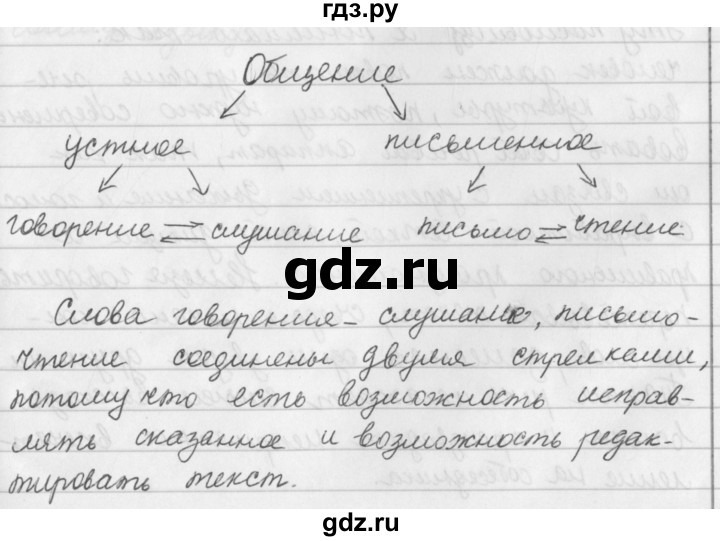 гдз.ру
Общение
устное письменное
говорение ⇄ слушание письмо ⇄ чтение
gdz.ru
Слова говорения – слушание, письмо-
чтение соединены двумя стрелками,
потому что есть возможность исправ-
лять сказанное и возможность редак-
тировать текст.
gdz.ru